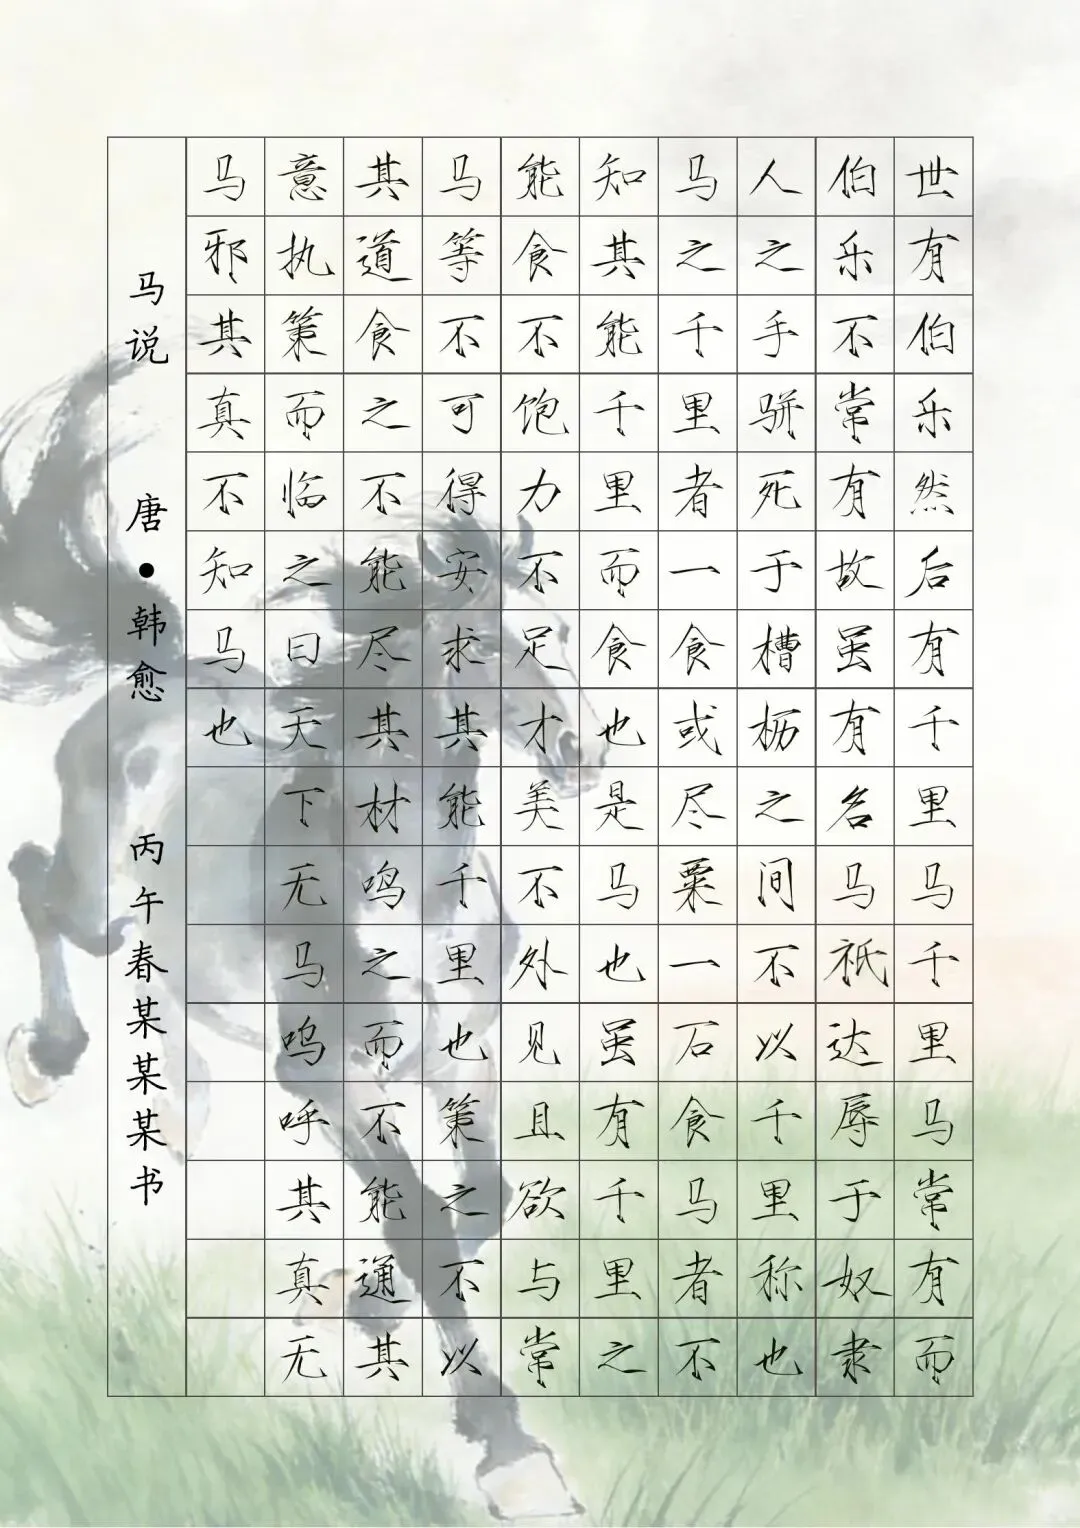 世有伯乐然后有千里马千里马常有而
伯乐不常有故虽有名马祇达辱于奴隶
人之手骈死于槽枥之间不以千里称也
马之千里者一食或尽粟一石食马者不
知其能千里而食也是马也虽有千里之
能食不饱力不足才美不外见且欲与常
马等不可得安求其能千里也策之不以
其道食之不能尽其材鸣之而不能通其
意执策而临之曰天下无马呜呼其真无
马邪其真不知马也
马说 唐•韩愈 丙午春某某某书